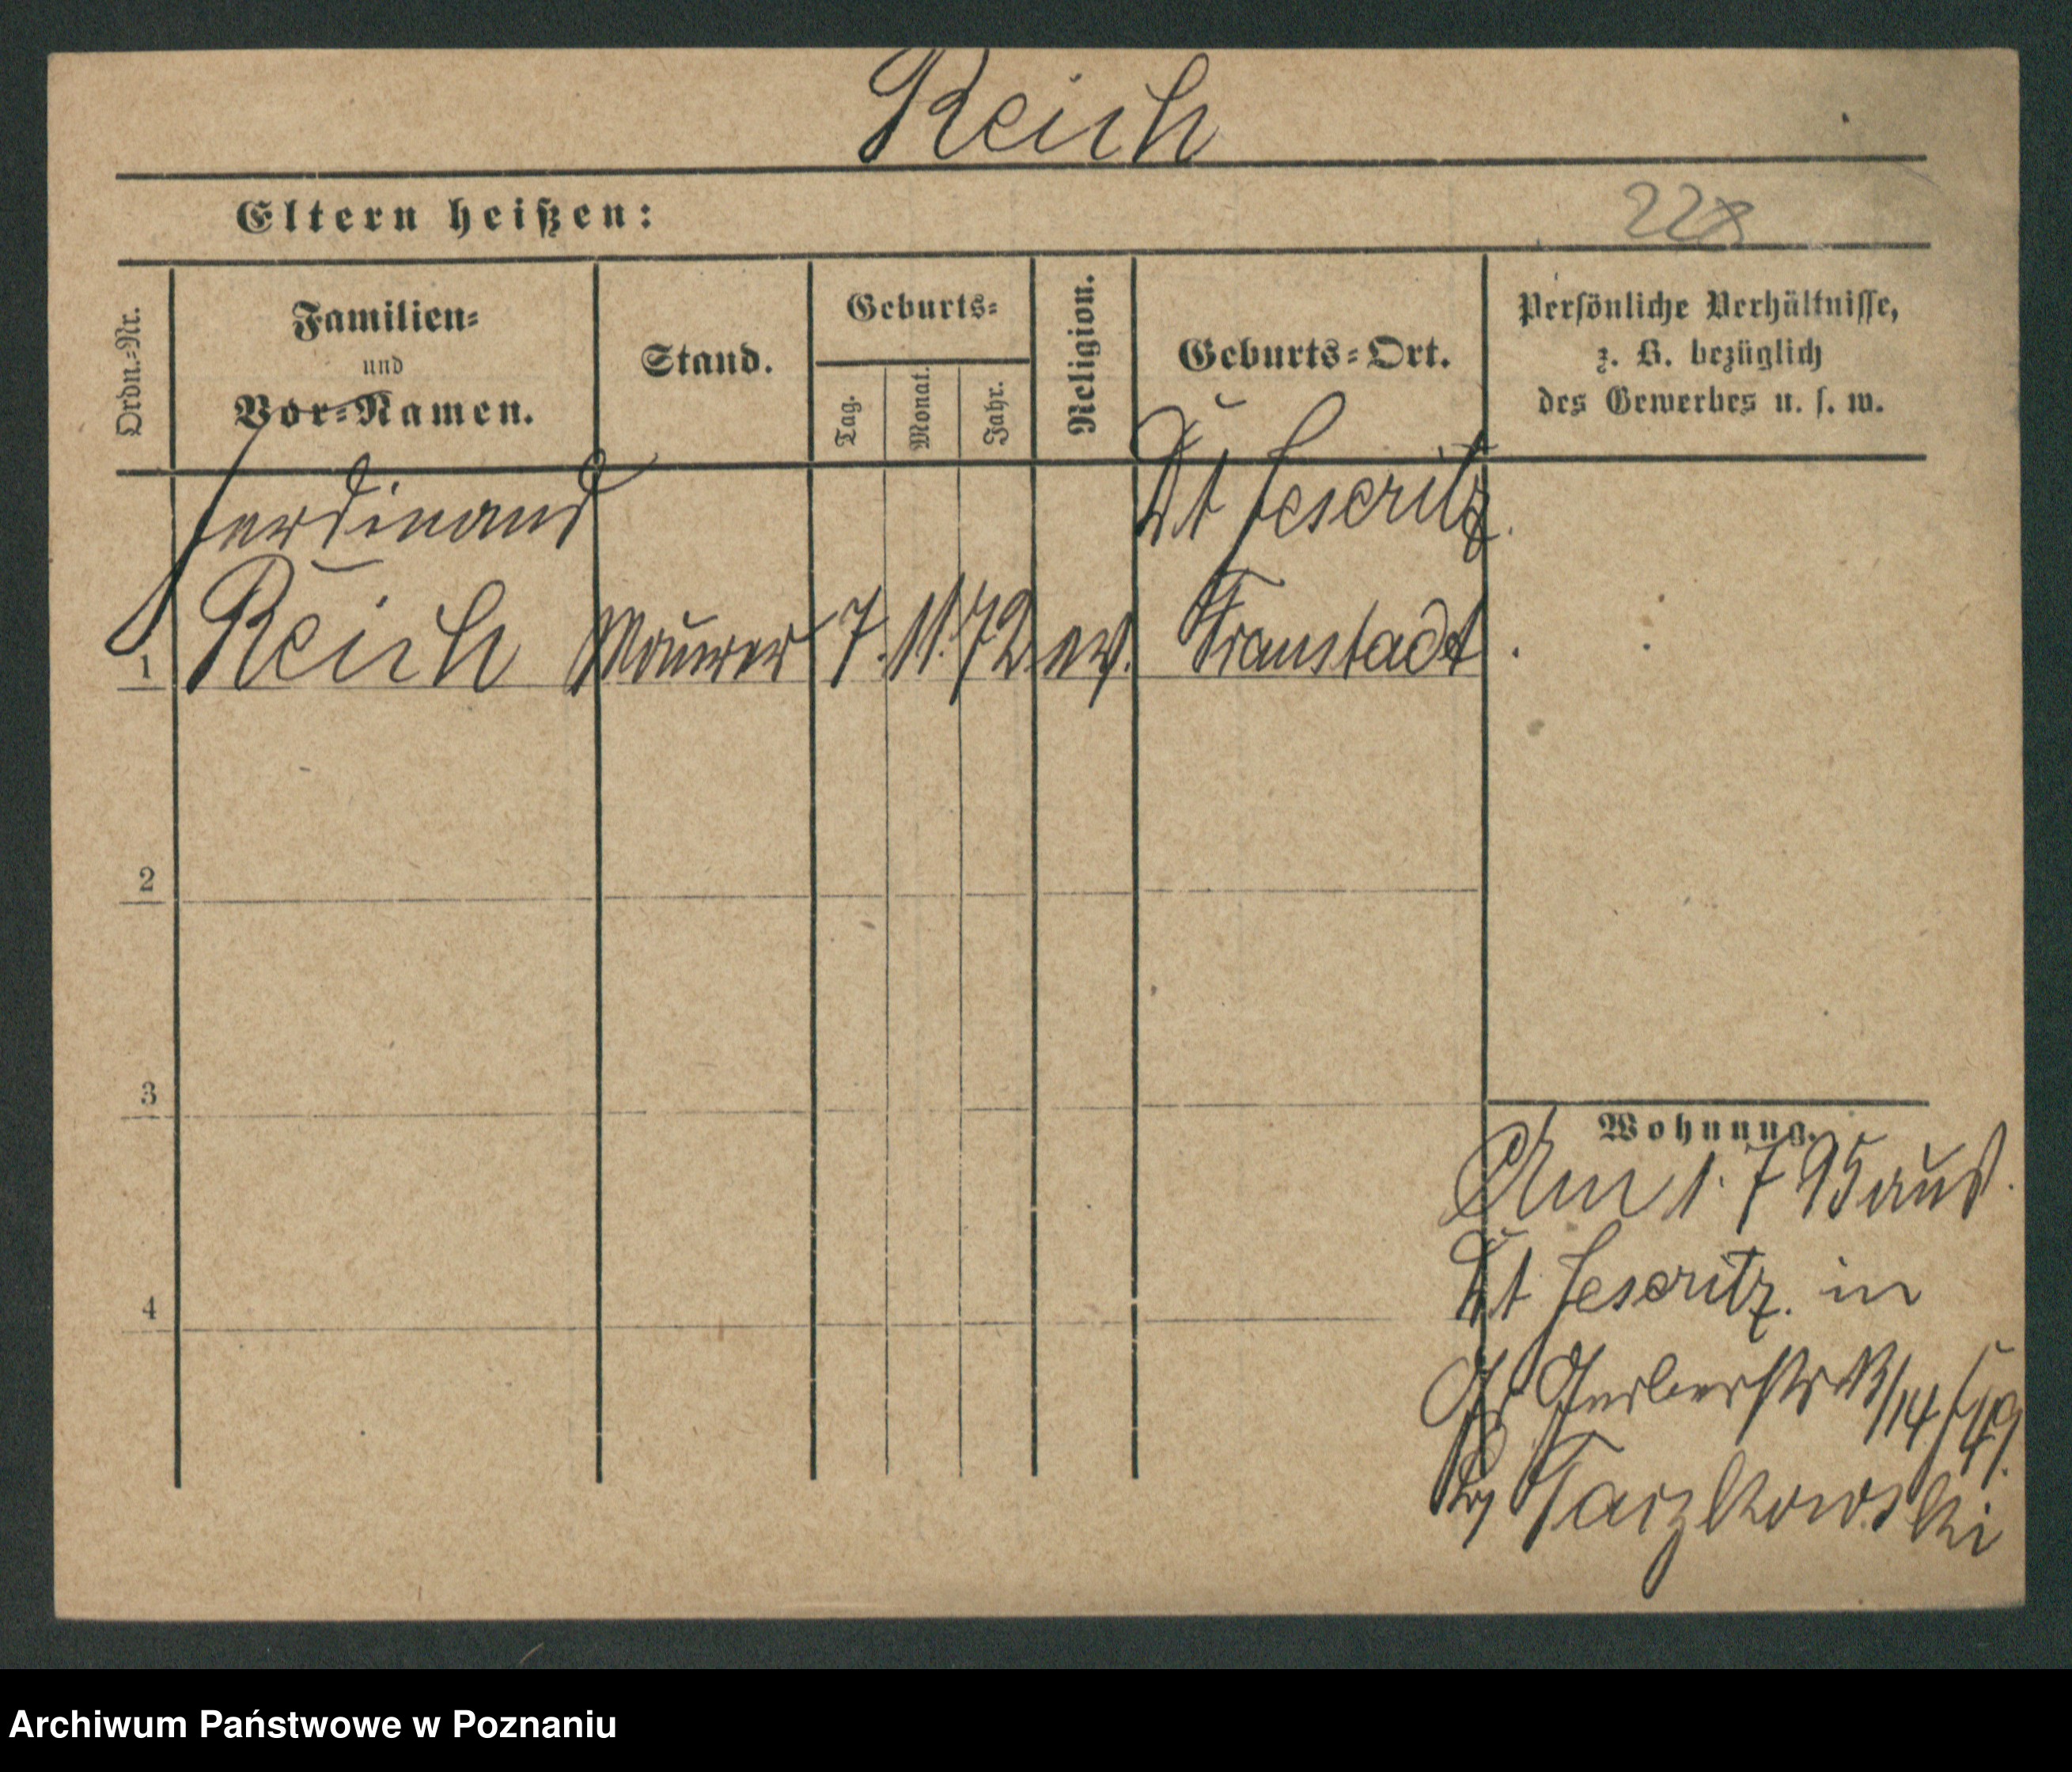 Reich
Eltern heißen:
228
Ordn.=Nr.
Familien=
und
Vor=Namen.
Stand.
Geburts=
Tag.
Monat.
Jahr.
Religion.
Geburts=Ort.
Persönliche Verhältnisse,
z. B. bezüglich
des Gewerbes u. s. w.
Ferdinand
Dt Jeseritz
1 Reich Maurer 7. 11. 72 ev. Fraustadt
2
3
4
Wohnung.
Am 1. 7 95 aus
Dt Jeseritz. in
Gr Gerberstr
Tarzkowski
Archiwum Państwowe w Poznaniu